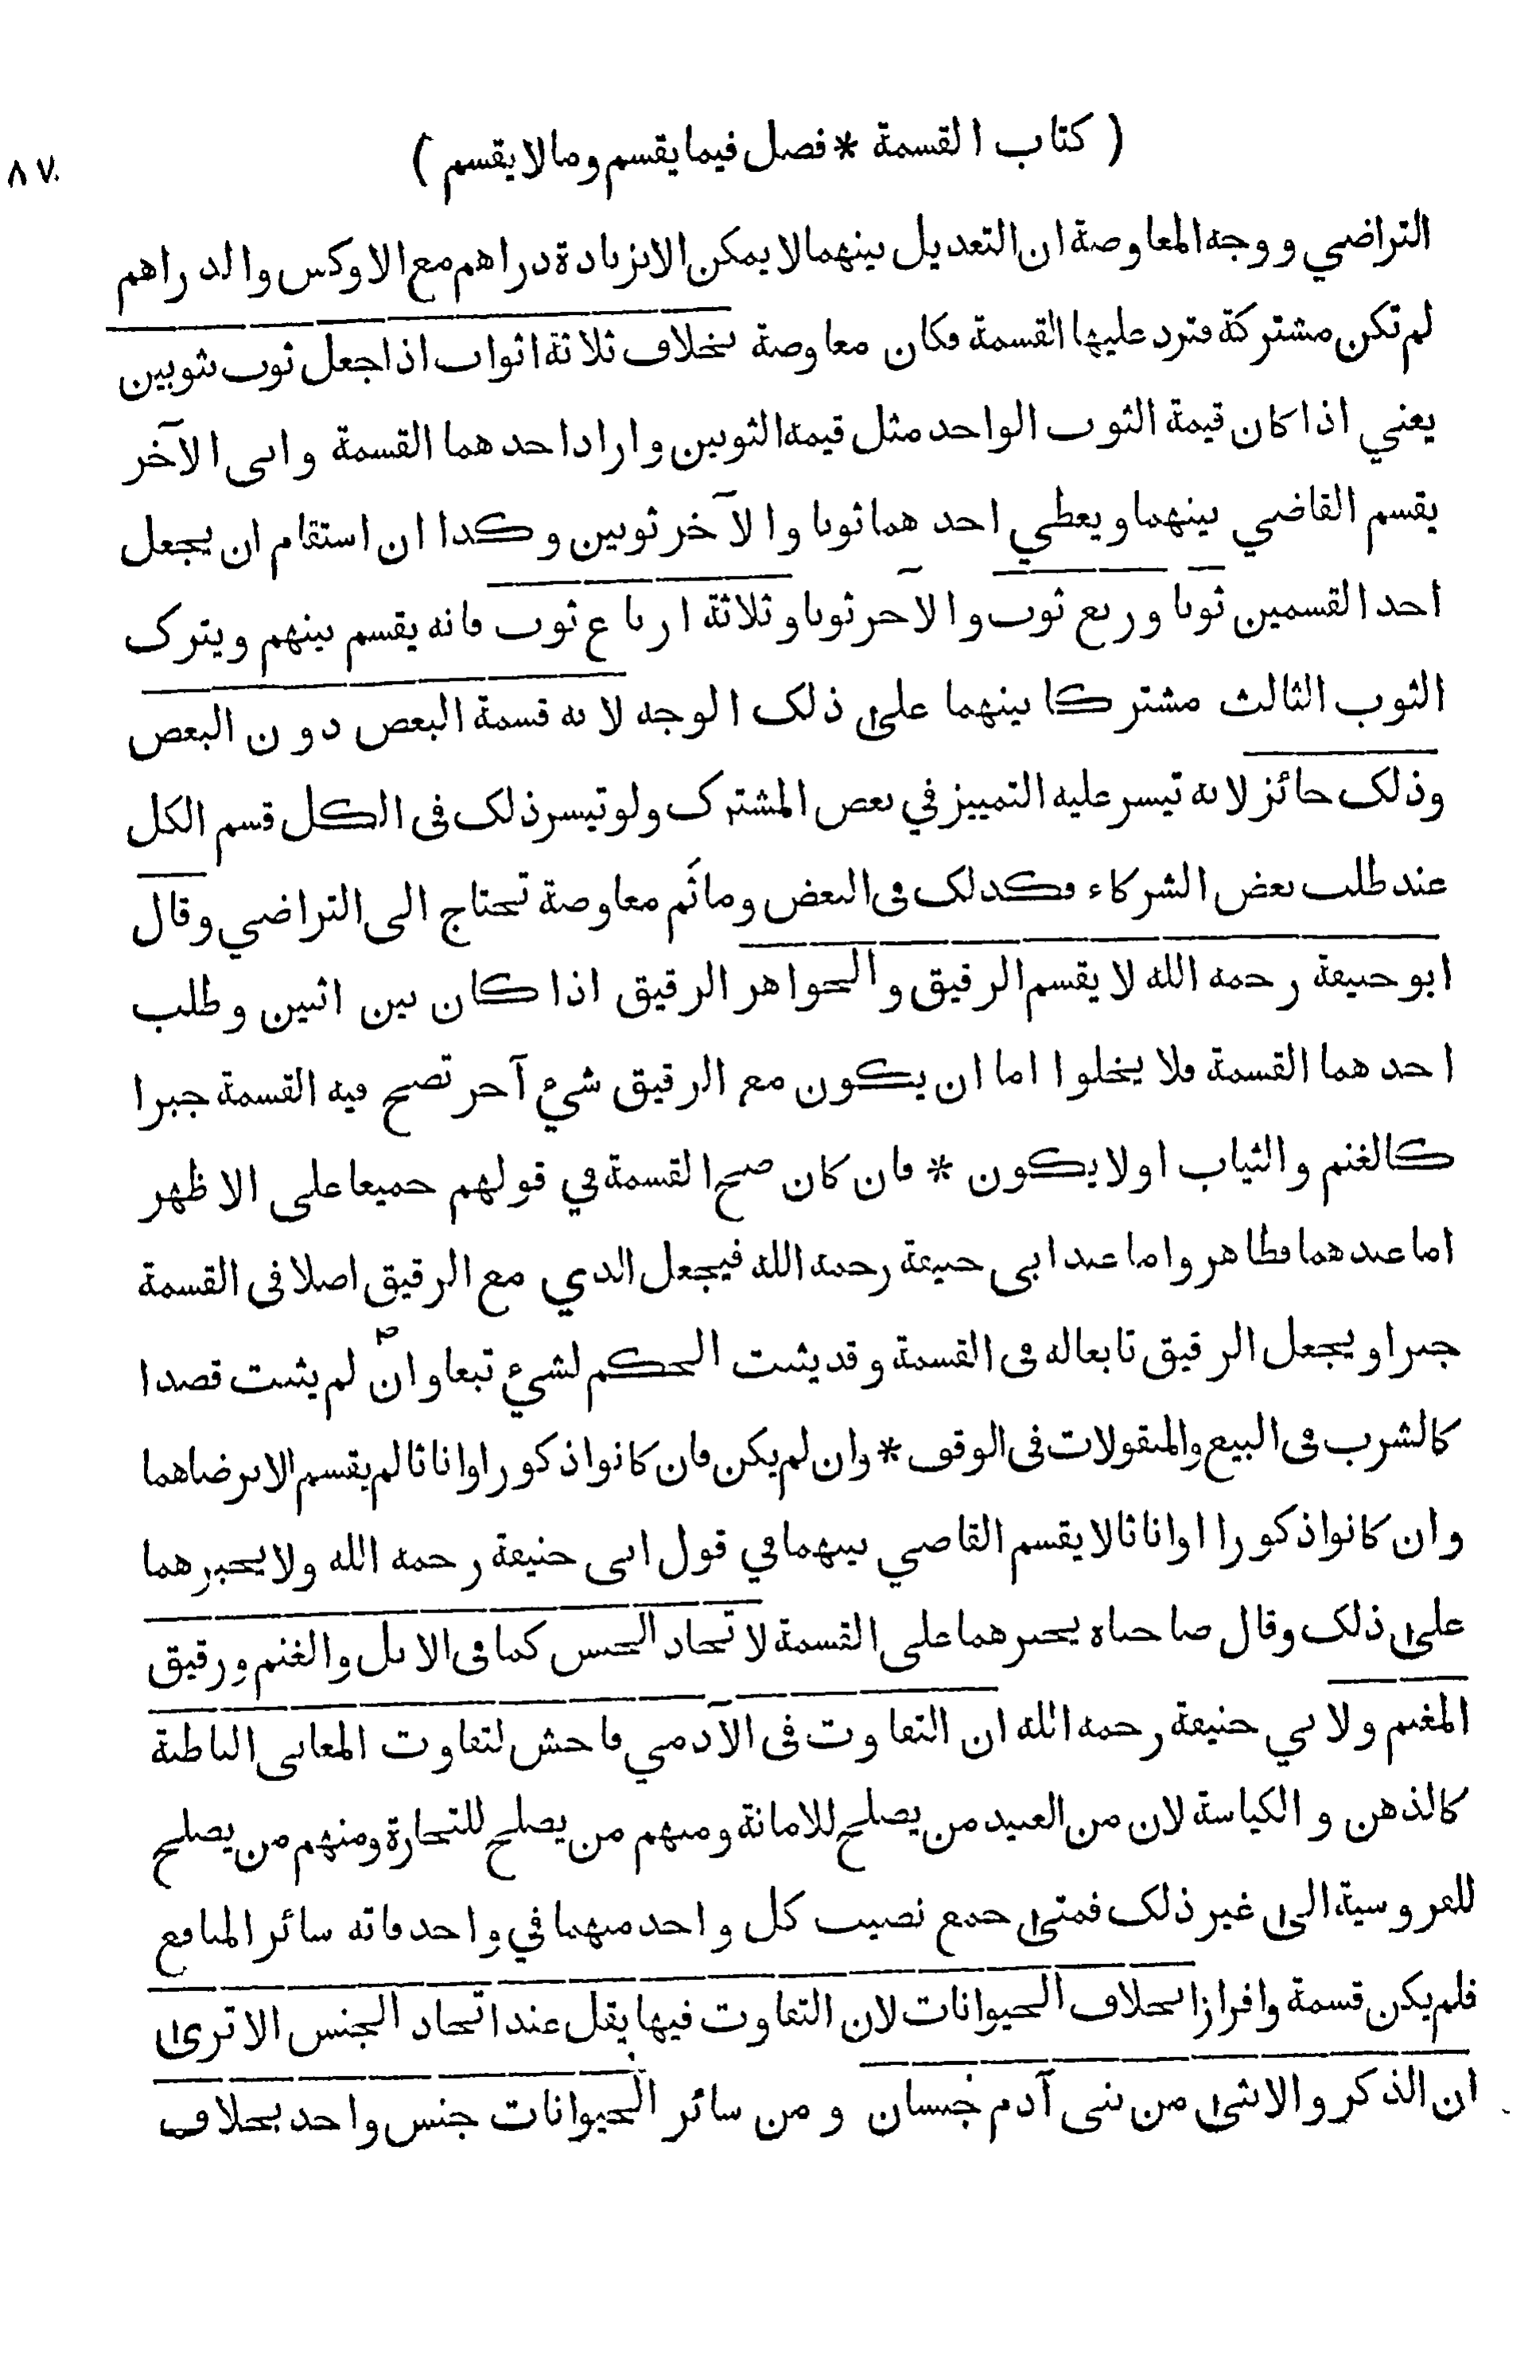 ( كتاب القسمة * فصل فيما يقسم وما لا يقسم )
٨٧
التراضي و وجه المعاوضة ان التعديل بينهما لا يمكن الا بزيادة دراهم مع الاوكس والدراهم
لم تكن مشتركة فترد عليها القسمة فكان معاوضة بخلاف ثلاثة اثواب اذا جعل ثوب بثوبين
يعني اذا كان قيمة الثوب الواحد مثل قيمة الثوبين واراد احدهما القسمة وابى الآخر
يقسم القاضي بينهما ويعطي احدهما ثوبا والآخر ثوبين وكذا ان استقام ان يجعل
احد القسمين ثوبا وربع ثوب والآخر ثوبا وثلاثة ارباع ثوب فانه يقسم بينهم ويترك
الثوب الثالث مشتركا بينهما على ذلك الوجه لانه قسمة البعض دون البعض
وذلك جائز لانه تيسر عليه التمييز في بعض المشترك ولو تيسر ذلك فى الكل قسم الكل
عند طلب بعض الشركاء فكذلك فى البعض وما ثَم معاوضة تحتاج الى التراضي وقال
ابو حنيفة رحمه الله لا يقسم الرقيق والجواهر الرقيق اذا كان بين اثنين وطلب
احدهما القسمة فلا يخلوا اما ان يكون مع الرقيق شيء آخر تصح فيه القسمة جبرا
كالغنم والثياب اولا يكون * فان كان صح القسمة في قولهم جميعا على الاظهر
اما عندهما فظاهر واما عند ابى حنيفة رحمه الله فيجعل الذي مع الرقيق اصلا فى القسمة
جبرا ويجعل الرقيق تابعا له فى القسمة وقد يثبت الحكم لشيء تبعا وان لم يثبت قصدا
كالشرب فى البيع والمنقولات فى الوقف * وان لم يكن فان كانوا ذكورا واناثا لم يقسم الا برضاهما
وان كانوا ذكورا او اناثا لا يقسم القاضي بينهما في قول ابى حنيفة رحمه الله ولا يجبرهما
على ذلك وقال صاحباه يجبرهما على القسمة لاتحاد الجنس كما فى الابل والغنم ورقيق
المغنم ولابي حنيفة رحمه الله ان التفاوت فى الآدمي فاحش لتفاوت المعانى الباطنة
كالذهن والكياسة لان من العبيد من يصلح للامانة ومنهم من يصلح للتجارة ومنهم من يصلح
للفروسية الى غير ذلك فمتى جمع نصيب كل واحد منهما في واحد فاته سائر المنافع
فلم يكن قسمة وافرازا بخلاف الحيوانات لان التفاوت فيها يقل عند اتحاد الجنس الا ترى
ان الذكر والانثى من بنى آدم جنسان ومن سائر الحيوانات جنس واحد بخلاف